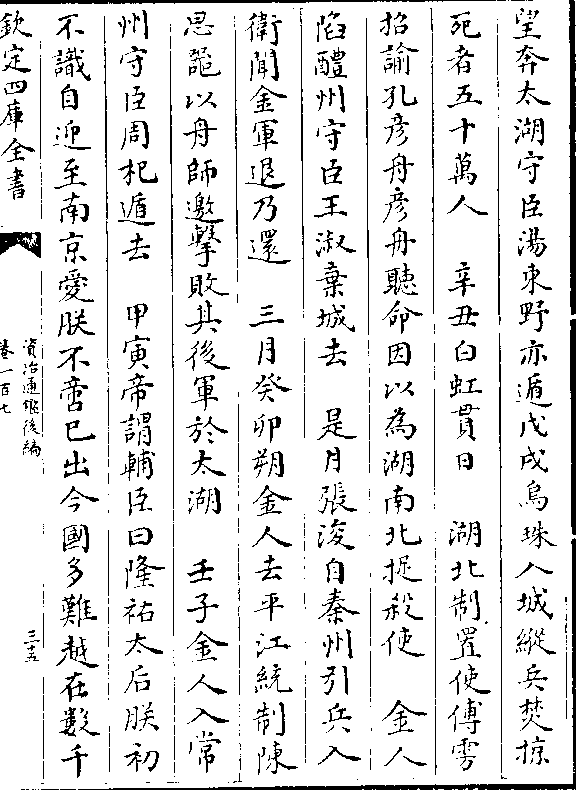 望奔太湖守臣湯東野亦遁戊戌烏珠入城縱兵焚掠
死者五十萬人　辛丑白虹貫日　湖北制置使傅雱
招諭孔彦舟彦舟聽命因以為湖南北捉殺使　金人
陷醴州守臣王淑棄城去　是月張浚自秦州引兵入
衛聞金軍退乃還　三月癸卯朔金人去平江統制陳
思㳟以舟師邀擊敗其後軍於太湖　壬子金人入常
州守臣周杞遁去　甲寅帝謂輔臣曰隆祐太后朕初
不識自迎至南京愛朕不啻已出今國多難越在數千
欽定四庫全書
資治通鑑後編
卷一百七
三十五